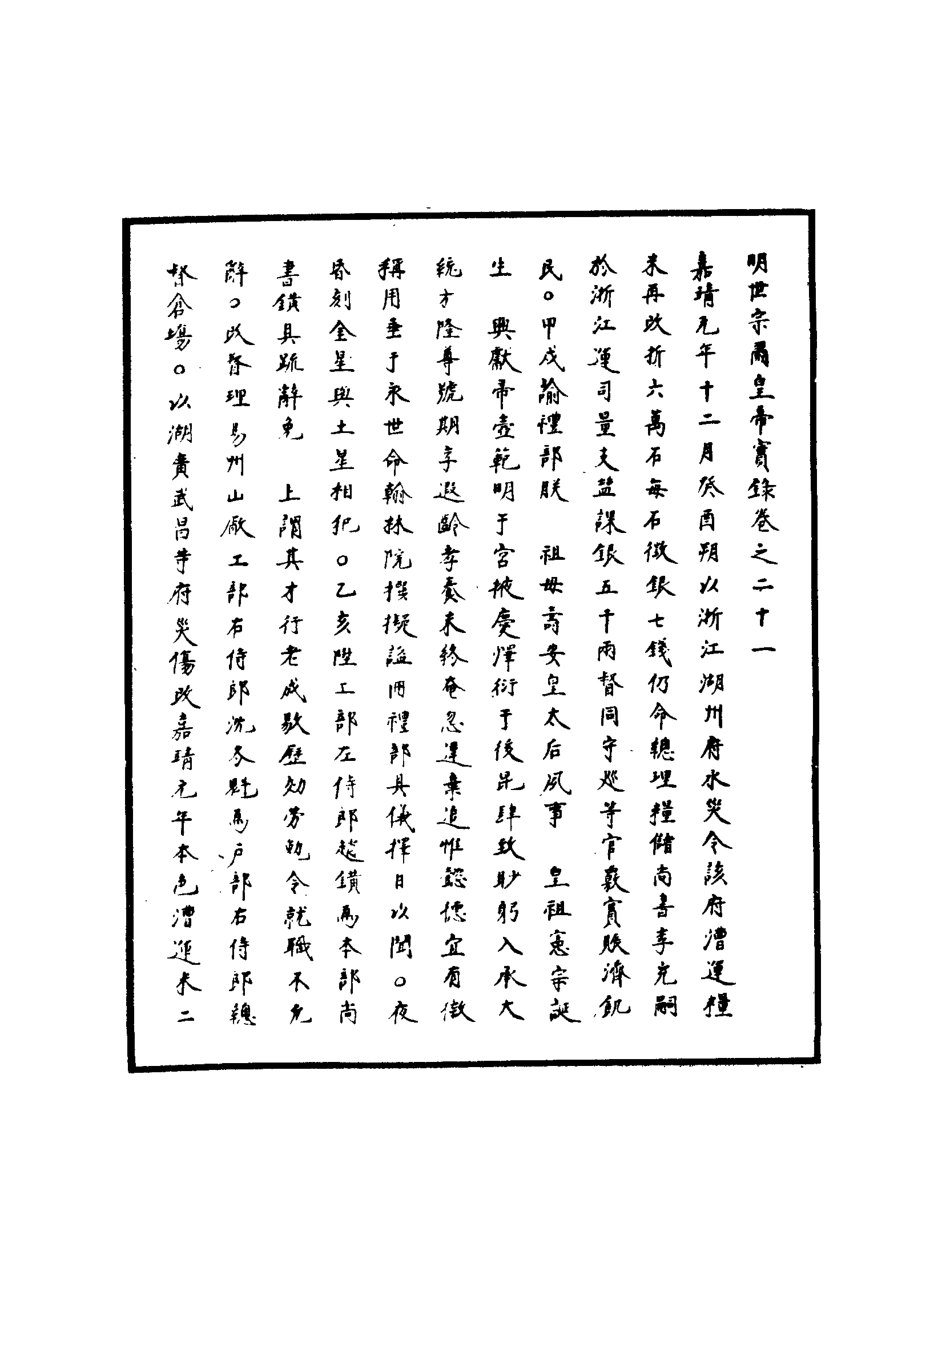 明世宗肅皇帝實錄卷之二十一
嘉靖元年十二月癸酉朔以浙江湖州府水災令該府漕運糧
米再改折六萬石每石徵銀七錢仍命總理糧儲尚書李充嗣
於浙江運司量支盐課銀五千兩督同守廵等官覈實賑濟飢
民○甲戌諭禮部朕 祖母壽安皇太后夙事 皇祖憲宗誕
生 興獻帝壼範明于宮掖慶澤衍于後昆肆致眇躬入承大
統方隆尊號期享遐齡孝養未終奄忽違棄追惟懿德宜有徽
稱用垂于永世命翰林院撰擬謚冊禮部具儀擇日以聞○夜
昏刻金星與土星相犯○乙亥陞工部左侍郎趙鐄為本部尚
書鐄具疏辭免 上謂其才行老成敭歷効勞勑令就職不允
辭○改督理易州山厰工部右侍郎沈冬魁為户部右侍郎總
督倉塲○以湖廣武昌等府災傷改嘉靖元年本色漕運米二